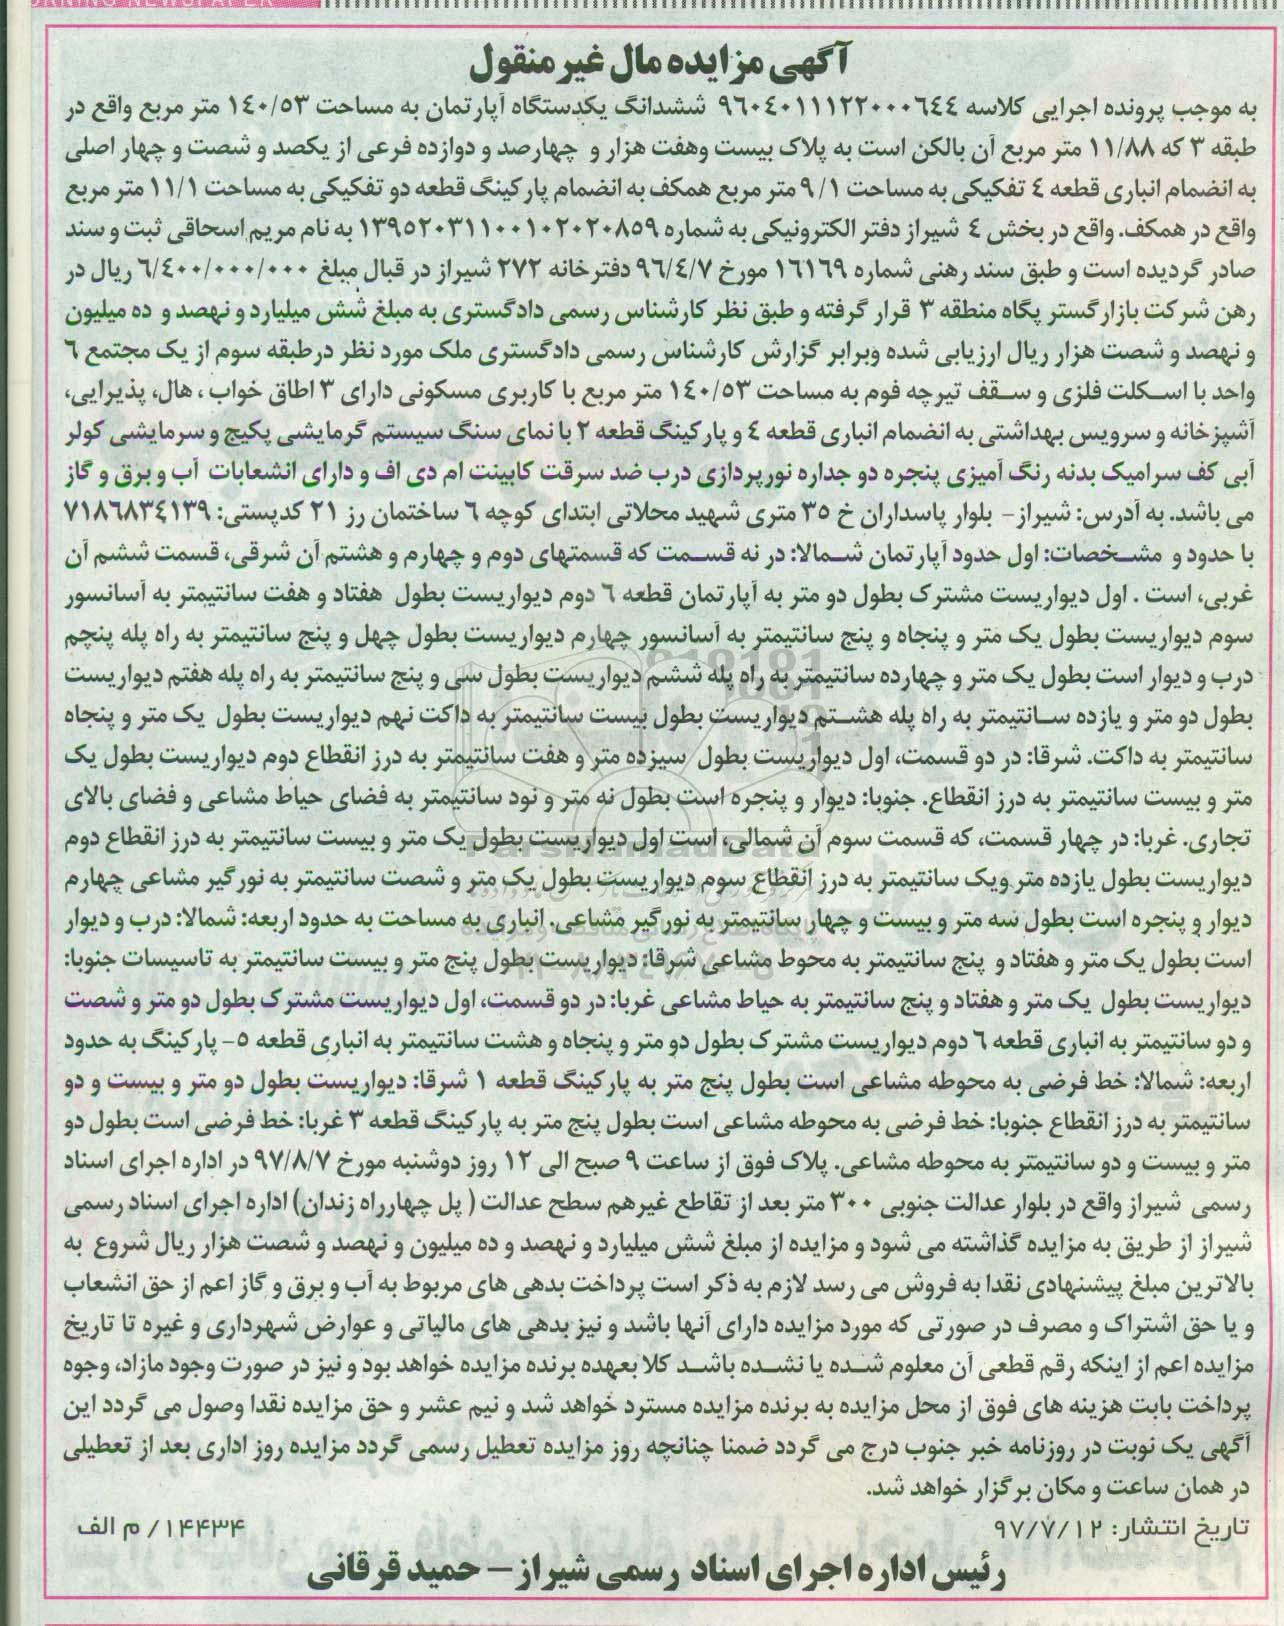 آگهی مزایده مال غیر منقول
به موجب پرونده اجرایی کلاسه ۹۶۰۴۰۱۱۱۲۲۰۰۰۶۴۴ ششدانگ یکدستگاه آپارتمان به مساحت ۱۴۰/۵۳ متر مربع واقع در
طبقه ۳ که ۱۱/۸۸ متر مربع آن بالکن است به پلاک بیست وهفت هزار و چهارصد و دوازده فرعی از یکصد و شصت و چهار اصلی
به انضمام انباری قطعه ۴ تفکیکی به مساحت ۹/۱ متر مربع همکف به انضمام پارکینگ قطعه دو تفکیکی به مساحت ۱۱/۱ متر مربع
واقع در همکف. واقع در بخش ۴ شیراز دفتر الکترونیکی به شماره ۱۳۹۵۲۰۳۱۱۰۰۱۰۲۰۲۰۸۵۹ به نام مریم اسحاقی ثبت و سند
صادر گردیده است و طبق سند رهنی شماره ۱۶۱۶۹ مورخ ۹۶/۴/۷ دفترخانه ۲۷۲ شیراز در قبال مبلغ ۶/۴۰۰/۰۰۰/۰۰۰ ریال در
رهن شرکت بازارگستر پگاه منطقه ۳ قرار گرفته و طبق نظر کارشناس رسمی دادگستری به مبلغ شش میلیارد و نهصد و ده میلیون
و نهصد و شصت هزار ریال ارزیابی شده وبرابر گزارش کارشناس رسمی دادگستری ملک مورد نظر درطبقه سوم از یک مجتمع ۶
واحد با اسکلت فلزی و سقف تیرچه فوم به مساحت ۱۴۰/۵۳ متر مربع با کاربری مسکونی دارای ۳ اطاق خواب ، هال، پذیرایی،
آشپزخانه و سرویس بهداشتی به انضمام انباری قطعه ۴ و پارکینگ قطعه ۲ با نمای سنگ سیستم گرمایشی پکیج و سرمایشی کولر
آبی کف سرامیک بدنه رنگ آمیزی پنجره دو جداره نورپردازی درب ضد سرقت کابینت ام دی اف و دارای انشعابات آب و برق و گاز
می باشد. به آدرس: شیراز- بلوار پاسداران خ ۳۵ متری شهید محلاتی ابتدای کوچه ۶ ساختمان رز ۲۱ کدپستی: ۷۱۸۶۸۳۴۱۳۹
با حدود و مشخصات: اول حدود آپارتمان شمالا: در نه قسمت که قسمتهای دوم و چهارم و هشتم آن شرقی، قسمت ششم آن
غربی، است . اول دیواریست مشترک بطول دو متر به آپارتمان قطعه ۶ دوم دیواریست بطول هفتاد و هفت سانتیمتر به آسانسور
سوم دیواریست بطول یک متر و پنجاه و پنج سانتیمتر به آسانسور چهارم دیواریست بطول چهل و پنج سانتیمتر به راه پله پنجم
درب و دیوار است بطول یک متر و چهارده سانتیمتر به راه پله ششم دیواریست بطول سی و پنج سانتیمتر به راه پله هفتم دیواریست
بطول دو متر و یازده سانتیمتر به راه پله هشتم دیواریست بطول بیست سانتیمتر به داکت نهم دیواریست بطول یک متر و پنجاه
سانتیمتر به داکت. شرقا: در دو قسمت، اول دیواریست بطول سیزده متر و هفت سانتیمتر به درز انقطاع دوم دیواریست بطول یک
متر و بیست سانتیمتر به درز انقطاع. جنوبا: دیوار و پنجره است بطول نه متر و نود سانتیمتر به فضای حیاط مشاعی و فضای بالای
تجاری. غربا: در چهار قسمت، که قسمت سوم آن شمالی، است اول دیواریست بطول یک متر و بیست سانتیمتر به درز انقطاع دوم
دیواریست بطول یازده متر ویک سانتیمتر به درز انقطاع سوم دیواریست بطول یک متر و شصت سانتیمتر به نورگیر مشاعی چهارم
دیوار و پنجره است بطول سه متر و بیست و چهار سانتیمتر به نورگیر مشاعی. انباری به مساحت به حدود اربعه: شمالا: درب و دیوار
است بطول یک متر و هفتاد و پنج سانتیمتر به محوط مشاعی شرقا: دیواریست بطول پنج متر و بیست سانتیمتر به تاسیسات جنوبا:
دیواریست بطول یک متر و هفتاد و پنج سانتیمتر به حیاط مشاعی غربا: در دو قسمت، اول دیواریست مشترک بطول دو متر و شصت
و دو سانتیمتر به انباری قطعه ۶ دوم دیواریست مشترک بطول دو متر و پنجاه و هشت سانتیمتر به انباری قطعه ۵- پارکینگ به حدود
اربعه: شمالا: خط فرضی به محوطه مشاعی است بطول پنج متر به پارکینگ قطعه ۱ شرقا: دیواریست بطول دو متر و بیست و دو
سانتیمتر به درز انقطاع جنوبا: خط فرضی به محوطه مشاعی است بطول پنج متر به پارکینگ قطعه ۳ غربا: خط فرضی است بطول دو
متر و بیست و دو سانتیمتر به محوطه مشاعی. پلاک فوق از ساعت ۹ صبح الی ۱۲ روز دوشنبه مورخ ۹۷/۸/۷ در اداره اجرای اسناد
رسمی شیراز واقع در بلوار عدالت جنوبی ۳۰۰ متر بعد از تقاطع غیرهم سطح عدالت ( پل چهارراه زندان) اداره اجرای اسناد رسمی
شیراز از طریق به مزایده گذاشته می شود و مزایده از مبلغ شش میلیارد و نهصد و ده میلیون و نهصد و شصت هزار ریال شروع به
بالاترین مبلغ پیشنهادی نقدا به فروش می رسد لازم به ذکر است پرداخت بدهی های مربوط به آب و برق و گاز اعم از حق انشعاب
و یا حق اشتراک و مصرف در صورتی که مورد مزایده دارای آنها باشد و نیز بدهی های مالیاتی و عوارض شهرداری و غیره تا تاریخ
مزایده اعم از اینکه رقم قطعی آن معلوم شده یا نشده باشد کلا بعهده برنده مزایده خواهد بود و نیز در صورت وجود مازاد، وجوه
پرداخت بابت هزینه های فوق از محل مزایده به برنده مزایده مسترد خواهد شد و نیم عشر و حق مزایده نقدا وصول می گردد این
آگهی یک نوبت در روزنامه خبر جنوب درج می گردد ضمنا چنانچه روز مزایده تعطیل رسمی گردد مزایده روز اداری بعد از تعطیلی
در همان ساعت و مکان برگزار خواهد شد.
تاریخ انتشار: ۹۷/۷/۱۲
۱۴۴۳۴/ م الف
رئیس اداره اجرای اسناد رسمی شیراز – حمید قرقانی